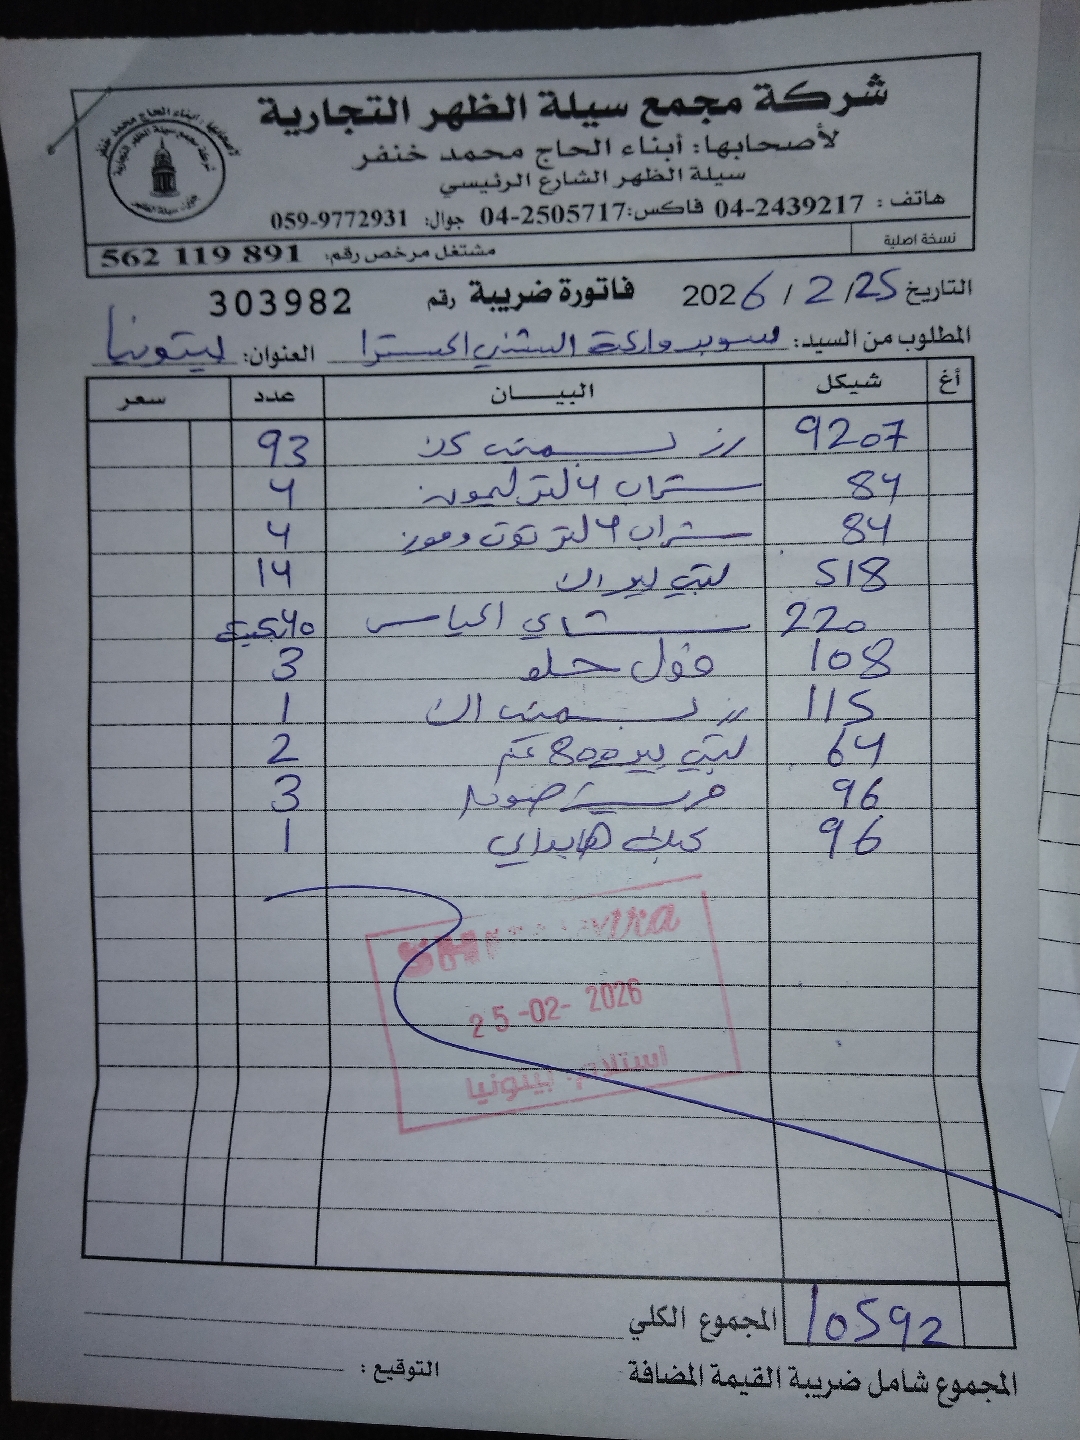 شركة مجمع سيلة الظهر التجارية
لأصحابها: أبناء الحاج محمد خنفر
سيلة الظهر الشارع الرئيسي
هاتف: 04-2439217 فاكس: 04-2505717 جوال: 059-9772931
نسخة اصلية
مشتغل مرخص رقم: 562 119 891
التاريخ 25/2/2026 فاتورة ضريبة رقم 303982
المطلوب من السيد: سوبر ماركت السنتي اكسترا العنوان: بيتونيا
أغ شيكل البيان عدد سعر
9207 رز بسمتي 93
84 شراب 4 لتر ليمون 4
84 شراب 4 لتر توت وموز 4
518 14
220 شاي 40
108 فول حلو 3
115 رز بسمتي 1
64 800 غم 2
96 3
96 1
25-02-2026
استلام بيتونيا
المجموع الكلي 10592
المجموع شامل ضريبة القيمة المضافة التوقيع: